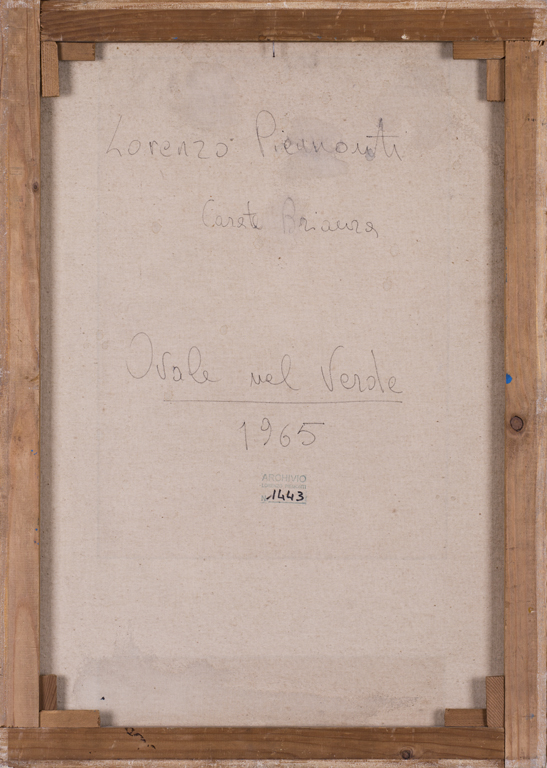 Lorenzo Piemonti
Carate Brianza
Ovale nel Verde
1965
ARCHIVIO
1443